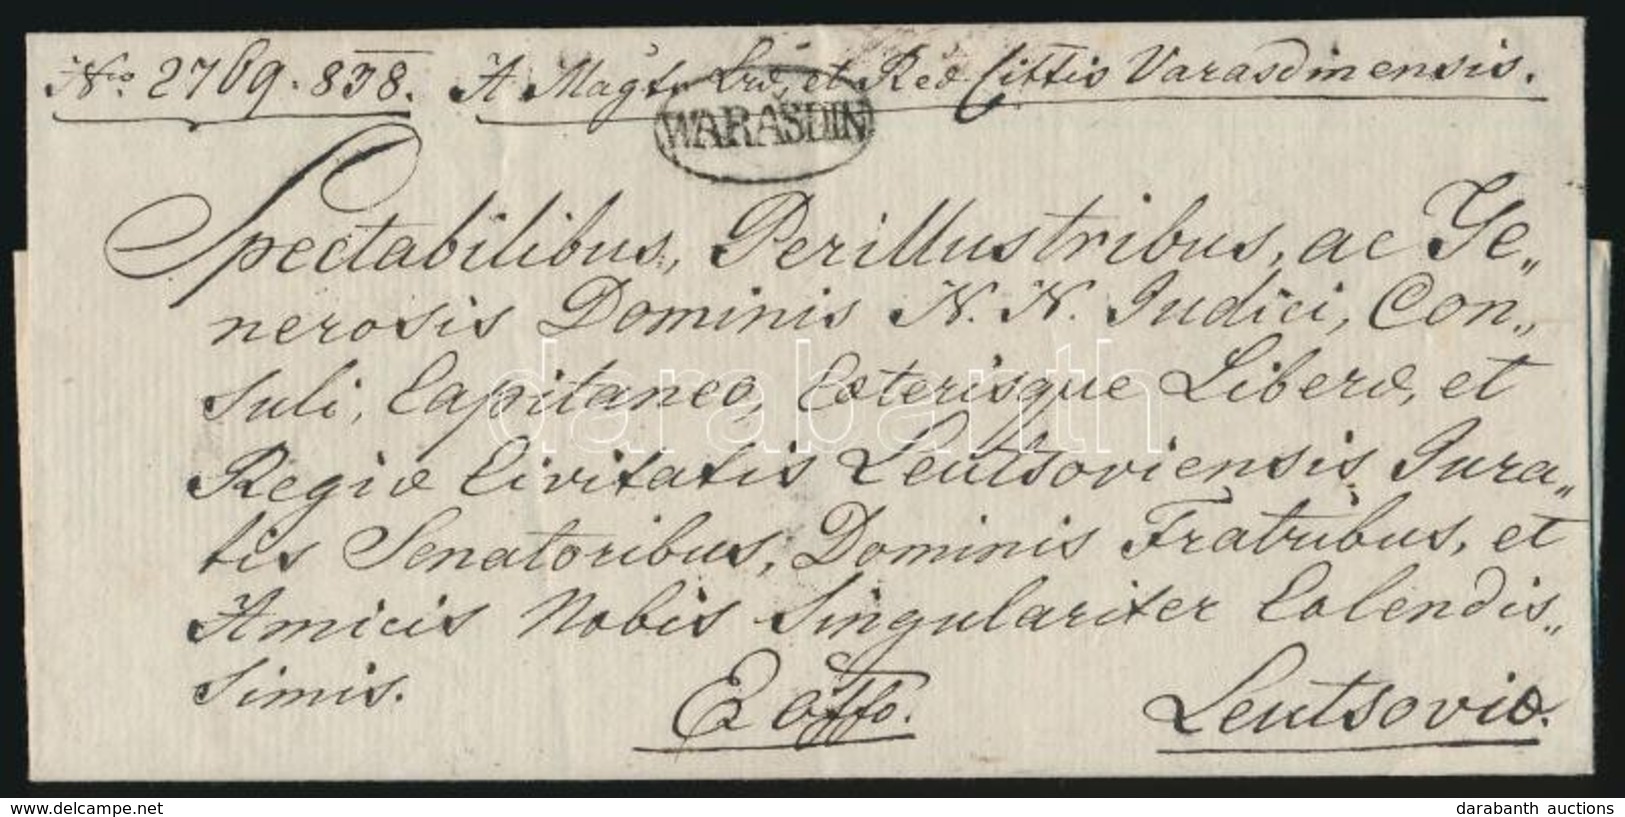 Nro. 2769.838. A Magtu Lræ, et Reæ Cittis Varasdinensis.
WARASDIN
Spectabilibus, Perillustribus, ac Ge„
nerosis Dominis N. N. Judici, Con„
suli, Capitaneo, Cæterisque Liberæ, et
Regiæ Civitatis Leutsoviensis Jura„
tis Senatoribus, Dominis Fratribus, et
Amicis Nobis Singulariter Colendis„
simis.
Ex offo. Leutsoviæ.
darabanth
www.delcampe.net darabanth auctions